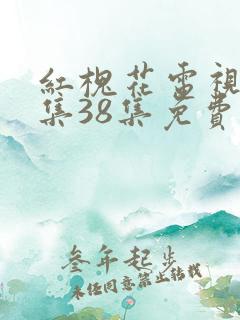 紅槐花電視
集38集免費
叁年起步
未任同意禁止轉載